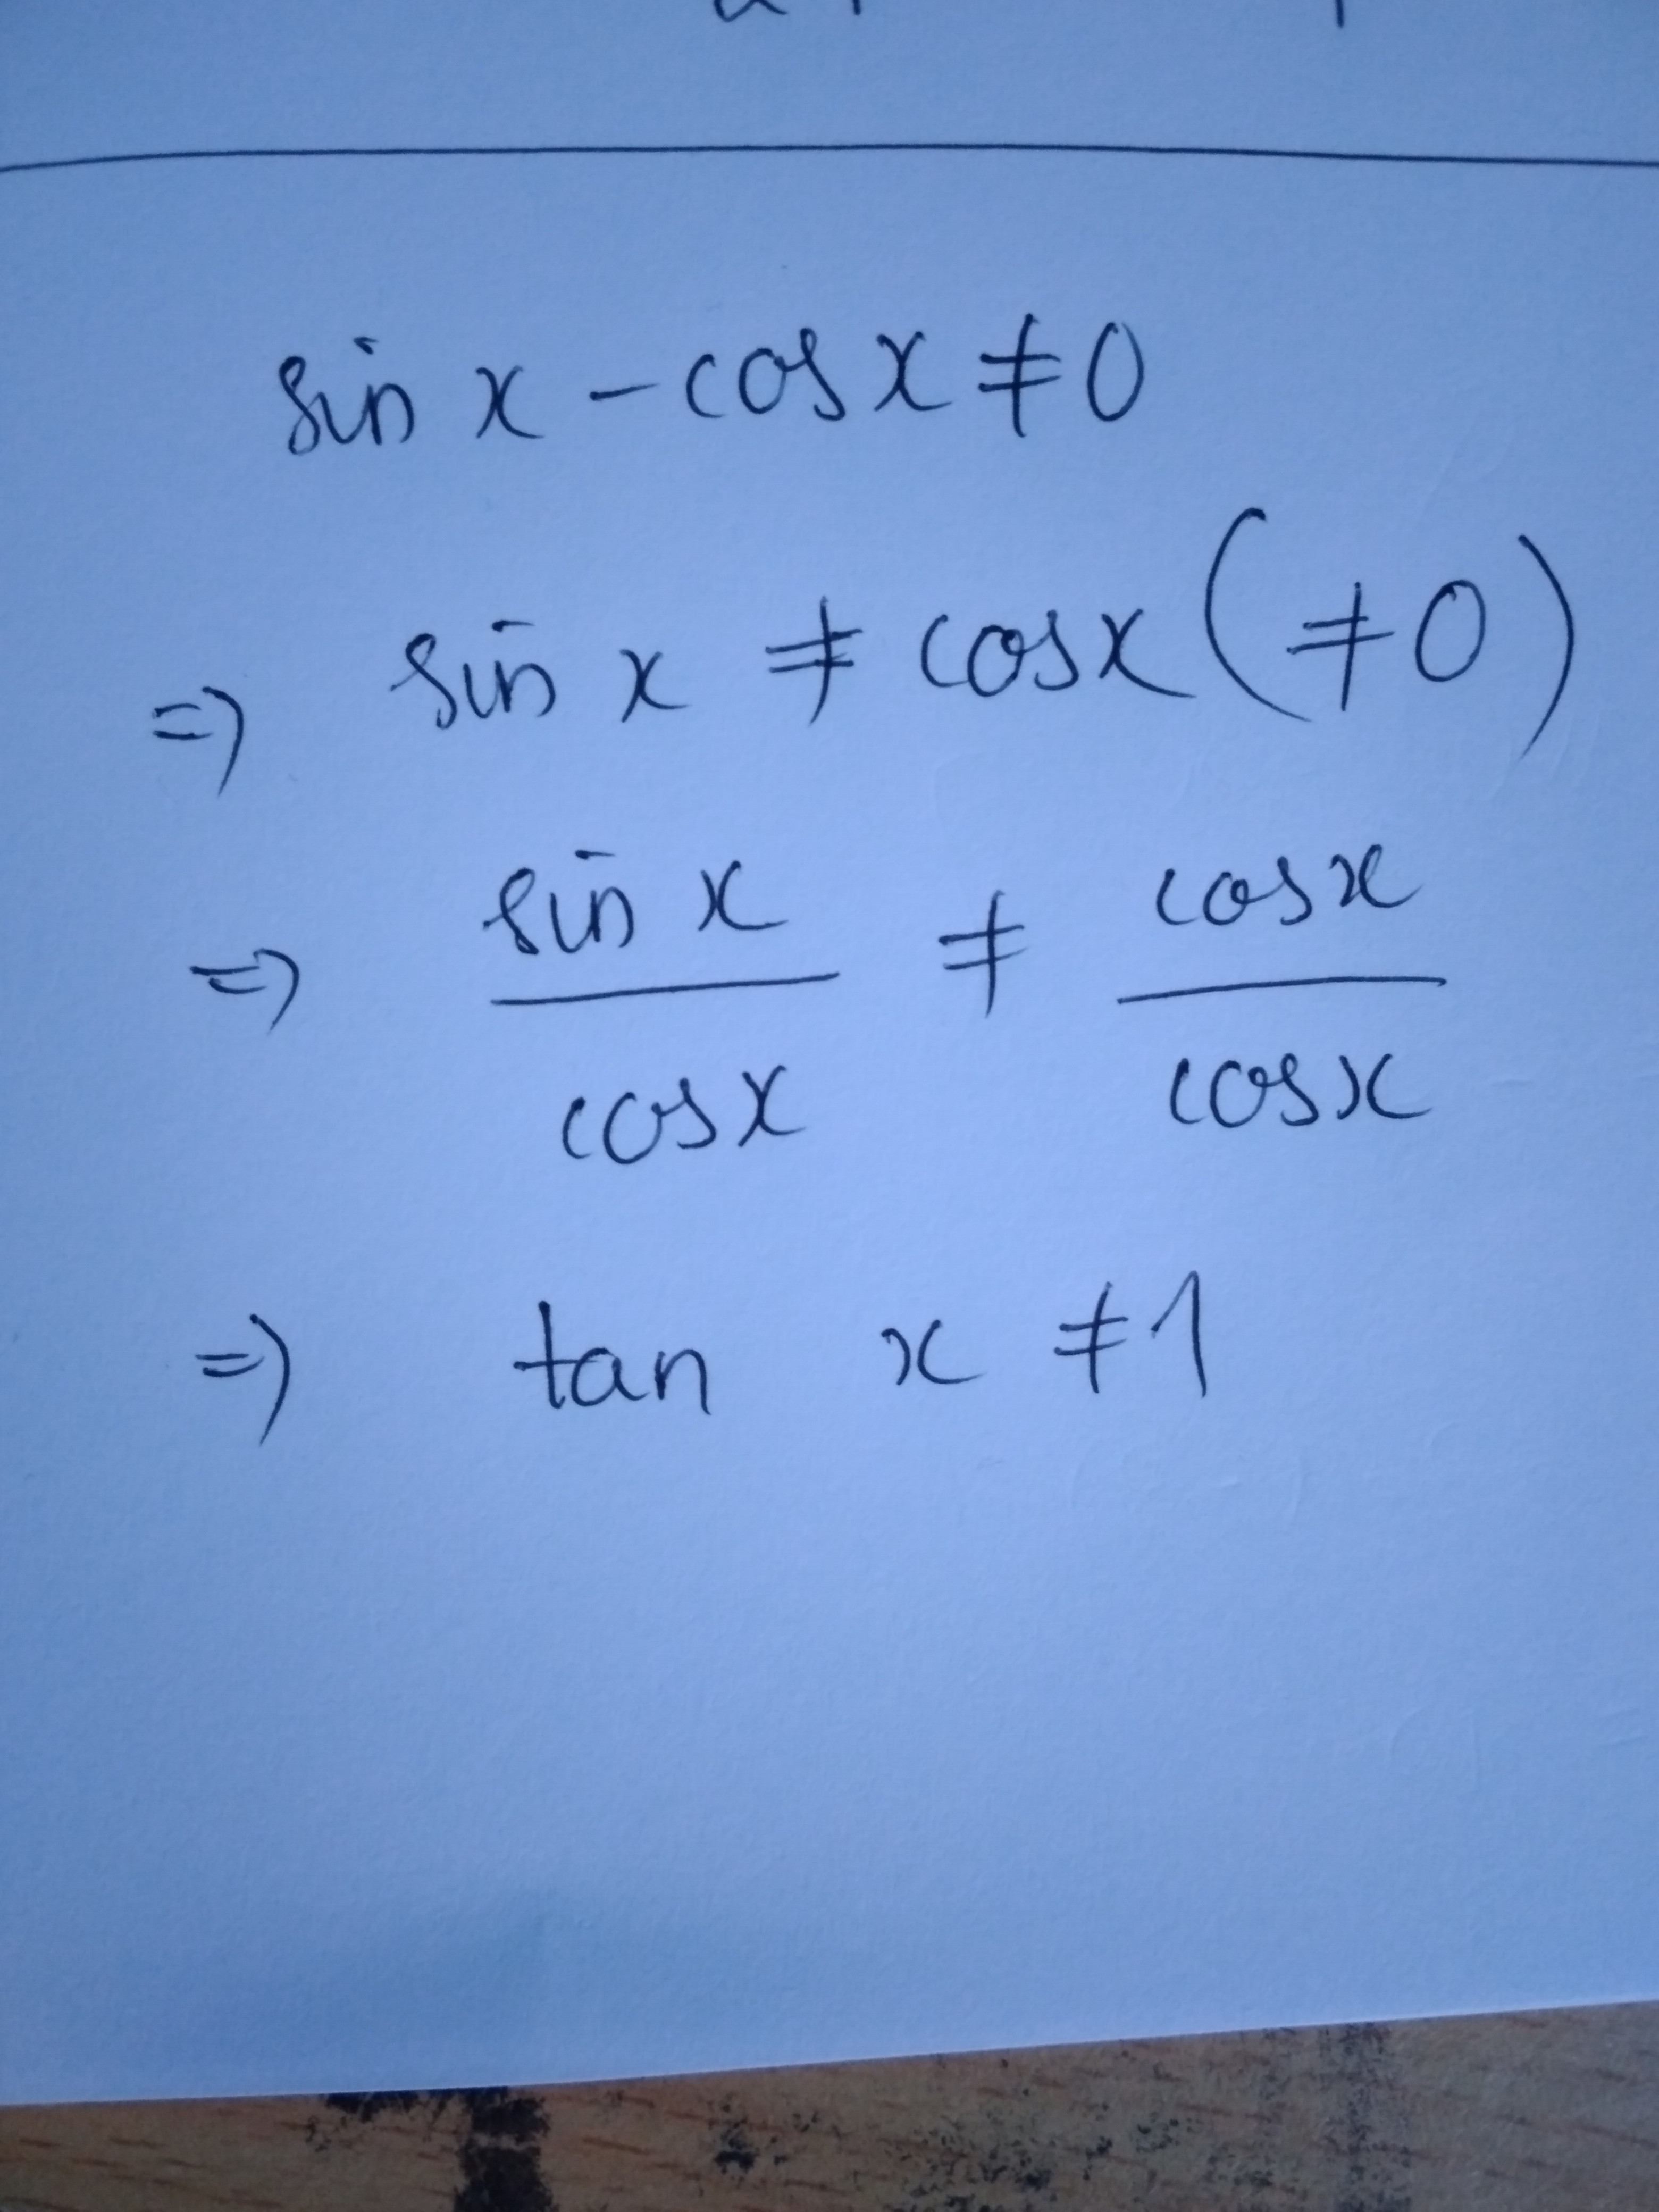 sin x - cos x ≠ 0
⇒ sin x ≠ cos x (≠ 0)
⇒ sin x / cos x ≠ cos x / cos x
⇒ tan x ≠ 1